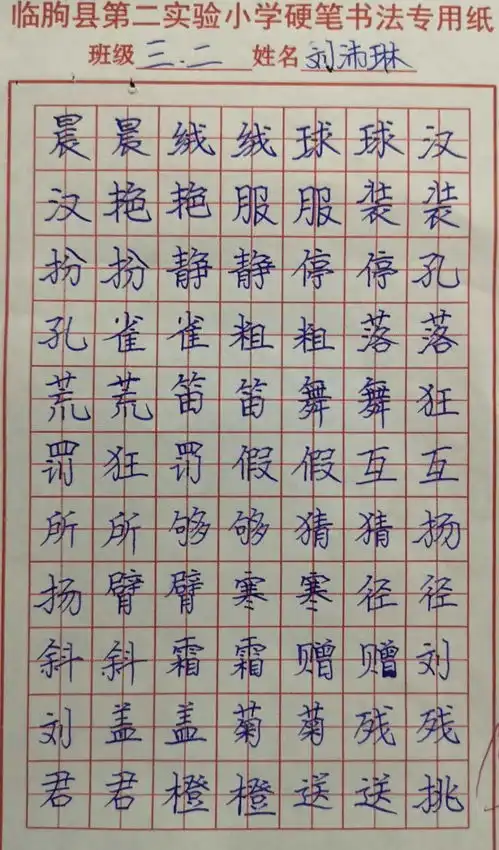 临朐县第二实验小学硬笔书法专用纸
班级 三.二 姓名 刘沛琳
晨晨绒绒球球汉
汉艳艳服服装装
扮扮静静停停孔
孔雀雀粗粗落落
荒荒笛笛舞舞狂
罚狂罚假假互互
所所够够猜猜扬
扬臂臂寒寒径径
斜斜霜霜赠赠刘
刘盖盖菊菊残残
君君橙橙送送挑